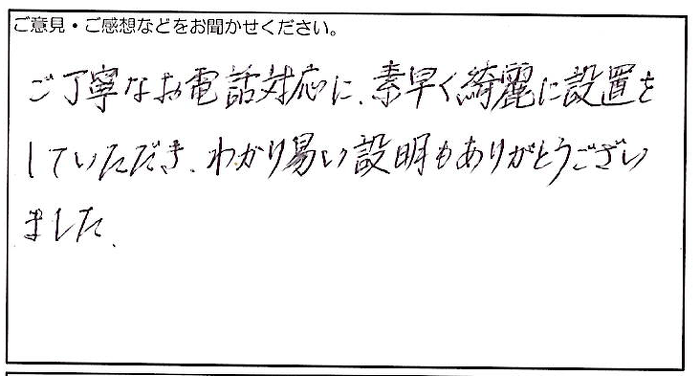 ご意見・ご感想などをお聞かせください。
ご丁寧なお電話対応に、素早く綺麗に設置を
していただき、わかり易い説明もありがとうござい
ました、